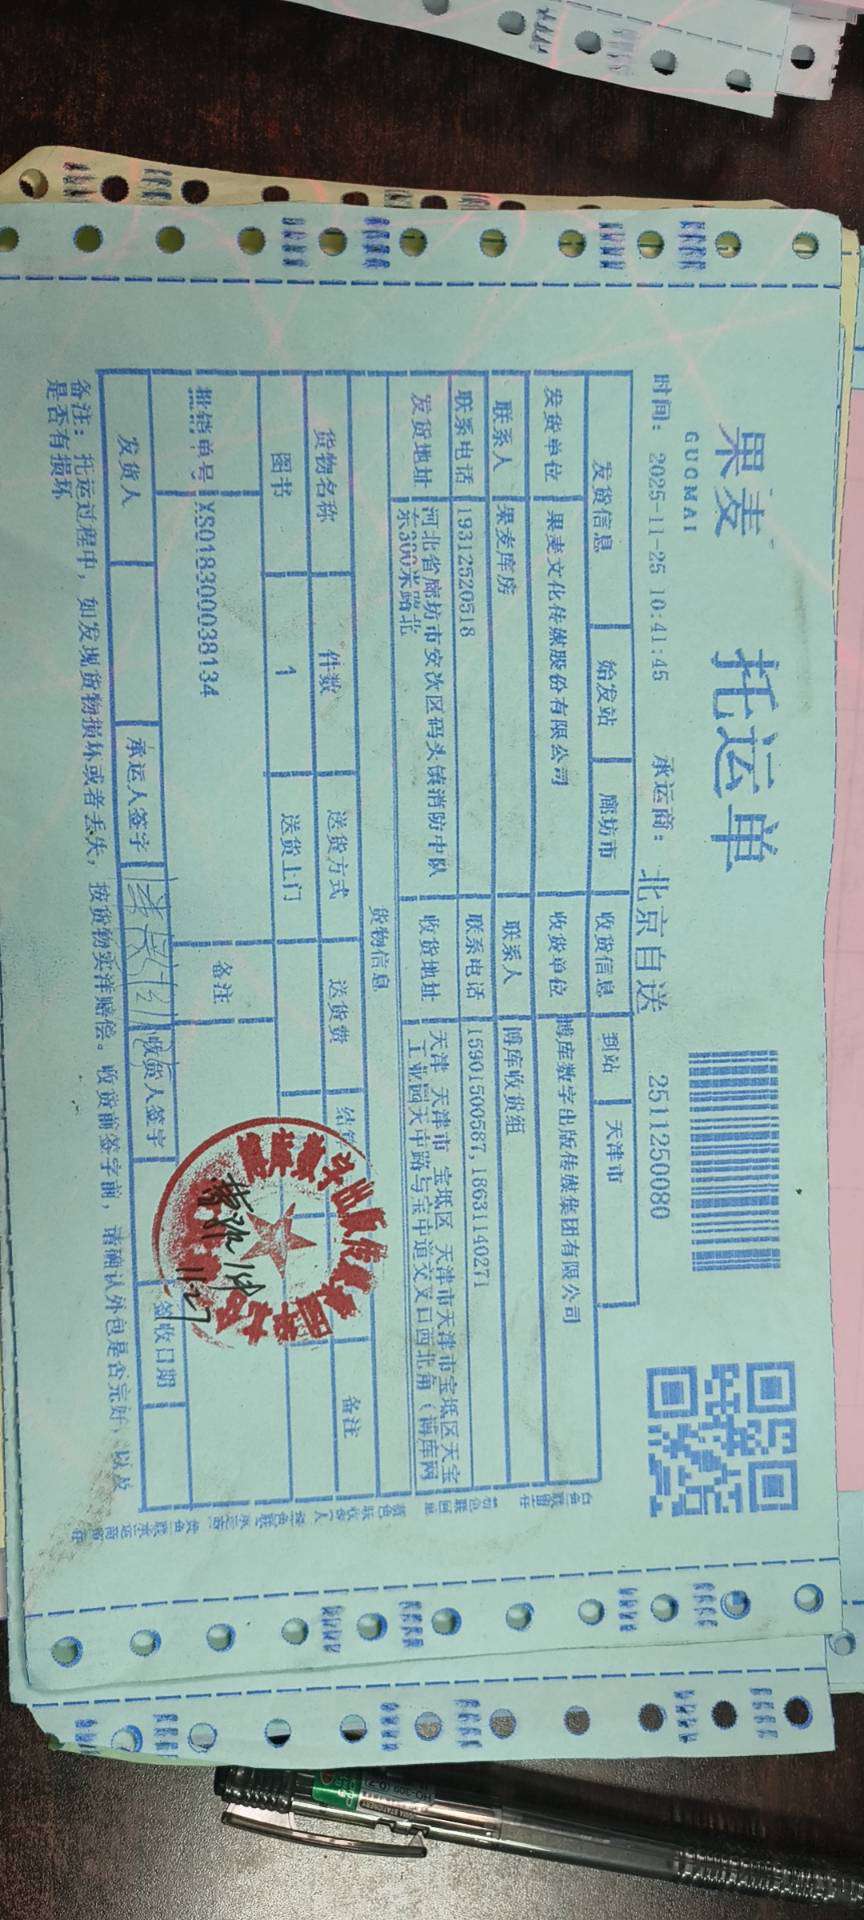 果麦
GUOMAI
托运单
时间：2025-11-25 10:41:45
承运商：北京自送
2511250080
发货信息 始发站 廊坊市 收货信息 到站 天津市
发货单位 果麦文化传媒股份有限公司 收货单位 博库数字出版传媒集团有限公司
联系人 果麦库房 联系人 博库收货组
联系电话 19312520518 联系电话 15901500587,18631140271
发货地址 河北省廊坊市安次区码头镇消防中队
东300米路北
收货地址 天津 天津市 宝坻区 天津市天津市宝坻区天宝
工业园天中路与宝中道交叉口西北角（博库网
货物信息
货物名称 件数 送货方式 送货费 备注
图书 1 送货上门
批销单号 XS018300038134 备注
发货人 承运人签字 收货人签字 签收日期
11.27
备注：托运过程中，如发现货物损坏或者丢失，按货物实洋赔偿。收货前签字前，请确认外包是否完好，以及
是否有损坏